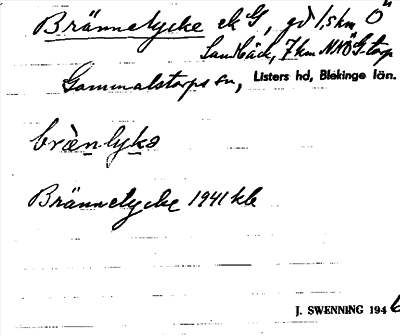 Brännelycke ek G, gd 1,5 km Ö
Sandbäck, 7 km NNÖ G-torp
Gammalstorps sn, Listers hd, Blekinge län.
bræ̀nlykə
Brännelycke 1941 kb
J. SWENNING 1946